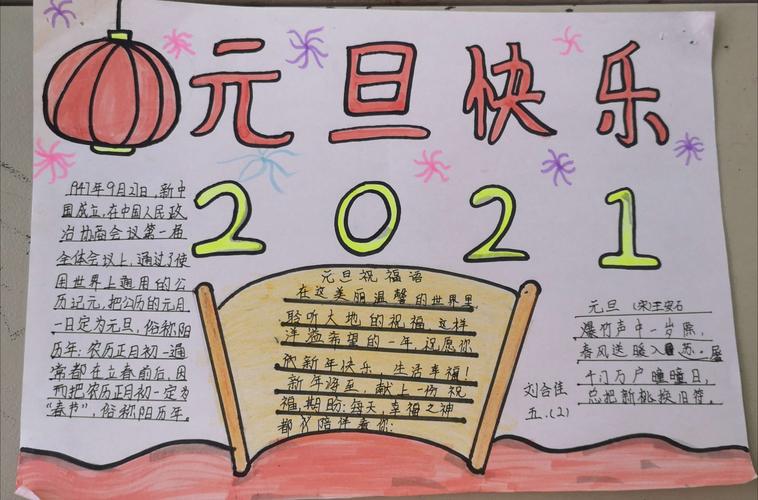 元旦快乐
2021
1947年9月27日，新中
国成立，在中国人民政
治协商会议第一届
全体会议上，通过了使
用世界上通用的公
历记元，把公历的元月
一日定为元旦，俗称阳
历年；农历正月初一通
常都在立春前后，因
而把农历正月初一定为
“春节”，俗称阳历年。
元旦祝福语
在这美丽温馨的世界里
聆听大地的祝福，这样
洋溢希望的一年，祝愿你
们新年快乐，生活幸福！
新年将至，献上一份祝
福，期盼：每天，幸福之神
都陪伴着你；
刘合佳
五.（2）
元旦（宋）王安石
爆竹声中一岁除，
春风送暖入屠苏。
千门万户曈曈日，
总把新桃换旧符。